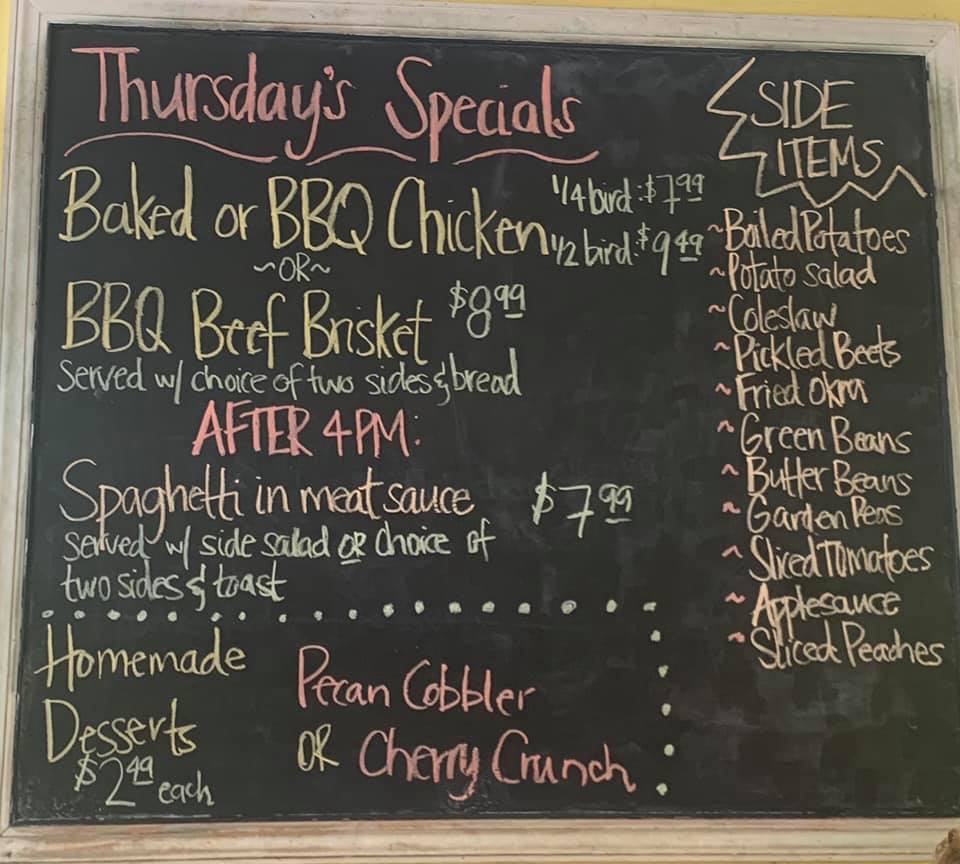 Thursday's Specials
Baked or BBQ Chicken
1/4 bird: $7.99
1/2 bird: $9.49
~OR~
BBQ Beef Brisket $8.99
Served w/ choice of two sides & bread
AFTER 4PM:
Spaghetti in meat sauce $7.99
Served w/ side salad OR choice of
two sides & toast
Homemade
Desserts
$2.49 each
Pecan Cobbler
OR Cherry Crunch
SIDE
ITEMS
~Boiled Potatoes
~Potato Salad
~Coleslaw
~Pickled Beets
~Fried Okra
~Green Beans
~Butter Beans
~Garden Peas
~Sliced Tomatoes
~Applesauce
~Sliced Peaches